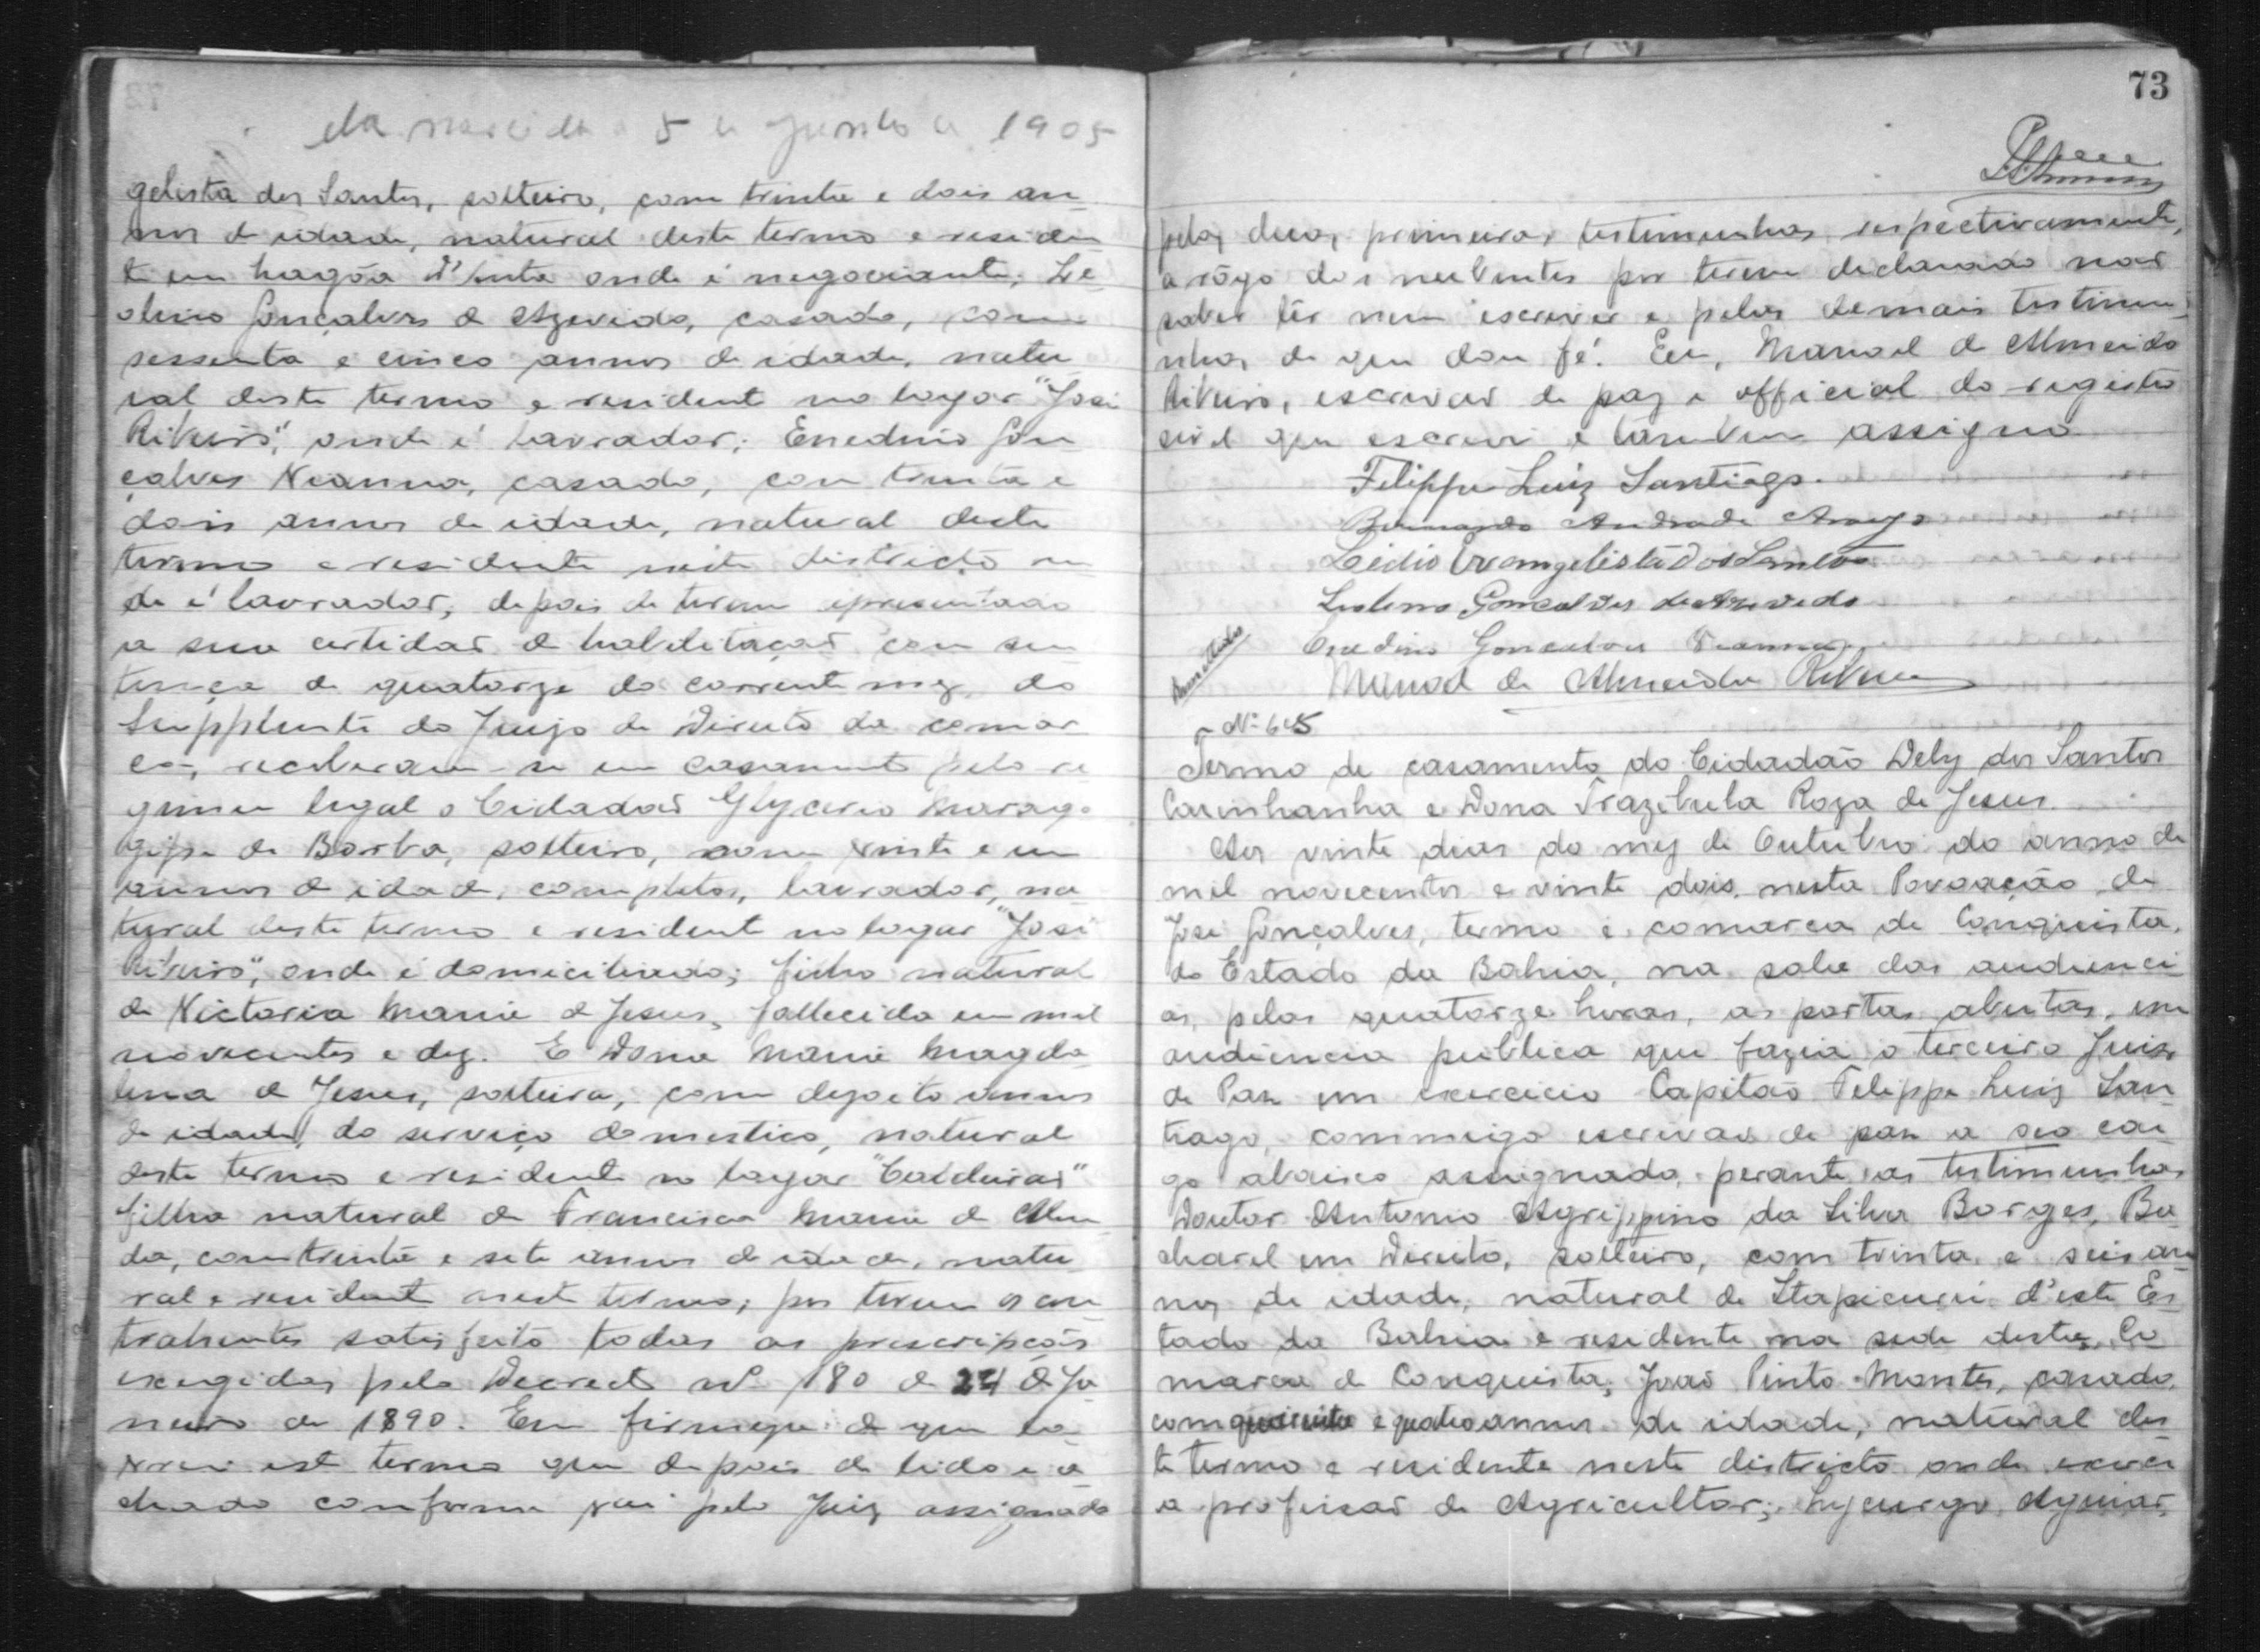 5 de Junho de 1905
gelista dos Santos, solteiro, com trinta e dois an-
nos de idade, natural deste termo e residen
te em Lagôa d'Anta onde é negociante; Le-
olino Gonçalves de Azevedo, casado, com
sessenta e cinco annos de idade, natu
ral deste termo e residente no logar "José
Ribeiro", onde é lavrador; Enedino Gon
çalves Vianna, casado, com trinta e
dois annos de idade, natural deste
termo e residente neste districto on
de é lavrador, depois de terem apresentado
a sua certidão de habilitação com sen
tença de quatorze do corrente mez do
Supplente do Juizo de Direito da comar
ca, receberam-se em casamento pelo re
gimen legal o Cidadão Glycerio Marago
gipe de Borba, solteiro, com vinte e um
annos de idade, completos, lavrador, na
tural deste termo e residente no logar "José
Ribeiro", onde é domiciliado; filho natural
de Victoria Maria de Jesus, fallecida em mil
novecentos e dez. E Dona Maria Magda
lena de Jesus, solteira, com dezoito annos
de idade, do serviço domestico, natural
deste termo e residente no logar "Caldeirão"
filha natural de Francisca Maria de Alm
da, com trinta e sete annos de idade, natu
ral e residente neste termo; por terem os con
trahentes satisfeito todas as prescripções
exegidas pelo Decreto nº 180 de 24 de Ja
neiro de 1890. Em firmeza de que la
vrei este termo que depois de lido e a
chado conforme vai pelo Juiz assignado
73
pelas duas primeiras testimunhas respectivamente,
a rôgo dos nubentes por terem declarado não
saber lêr nem escrever e pelas demais testimu
nhas de que dou fé. Eu, Manoel de Almeida
Ribeiro, escrivão de paz e official do registro
civil que escrevi e tambem assigno
Filippe Luiz Santiago.
Bernardo Andrade Araujo
Lidio Evangelista dos Santos
Leolino Gonçalves de Azevedo
Enedino Goncalves Vianna
Manoel de Almeida Ribeiro
Nº 645
Termo de casamento do Cidadão Dely dos Santos
Carinhanha e Dona Trazibula Roza de Jesus.
Aos vinte dias do mez de Outubro do anno de
mil novecentos e vinte dois, nesta Povoação de
José Gonçalves, termo e comarca de Conquista,
do Estado da Bahia, na sala das audienci
as, pelas quatorze horas, as portas abertas, em
audiencia publica que fazia o terceiro Juis
de Paz em exercicio Capitão Felippe Luiz San
tiago, commigo escrivão de paz a seo car
go abaixo assignado, perante as testimunhas
Doutor Antonio Agrippino da Silva Borges, Ba
charel em Direito, solteiro, com trinta e seis an
nos de idade, natural de Itapicurú d'este Es
tado da Bahia e residente na sede desta Co
marca de Conquista; João Pinto Montes, casado,
com quarenta e quatro annos de idade, natural des
te termo e residente neste districto onde exerce
a profissão de Agricultor; Lycurgo Aguiar,